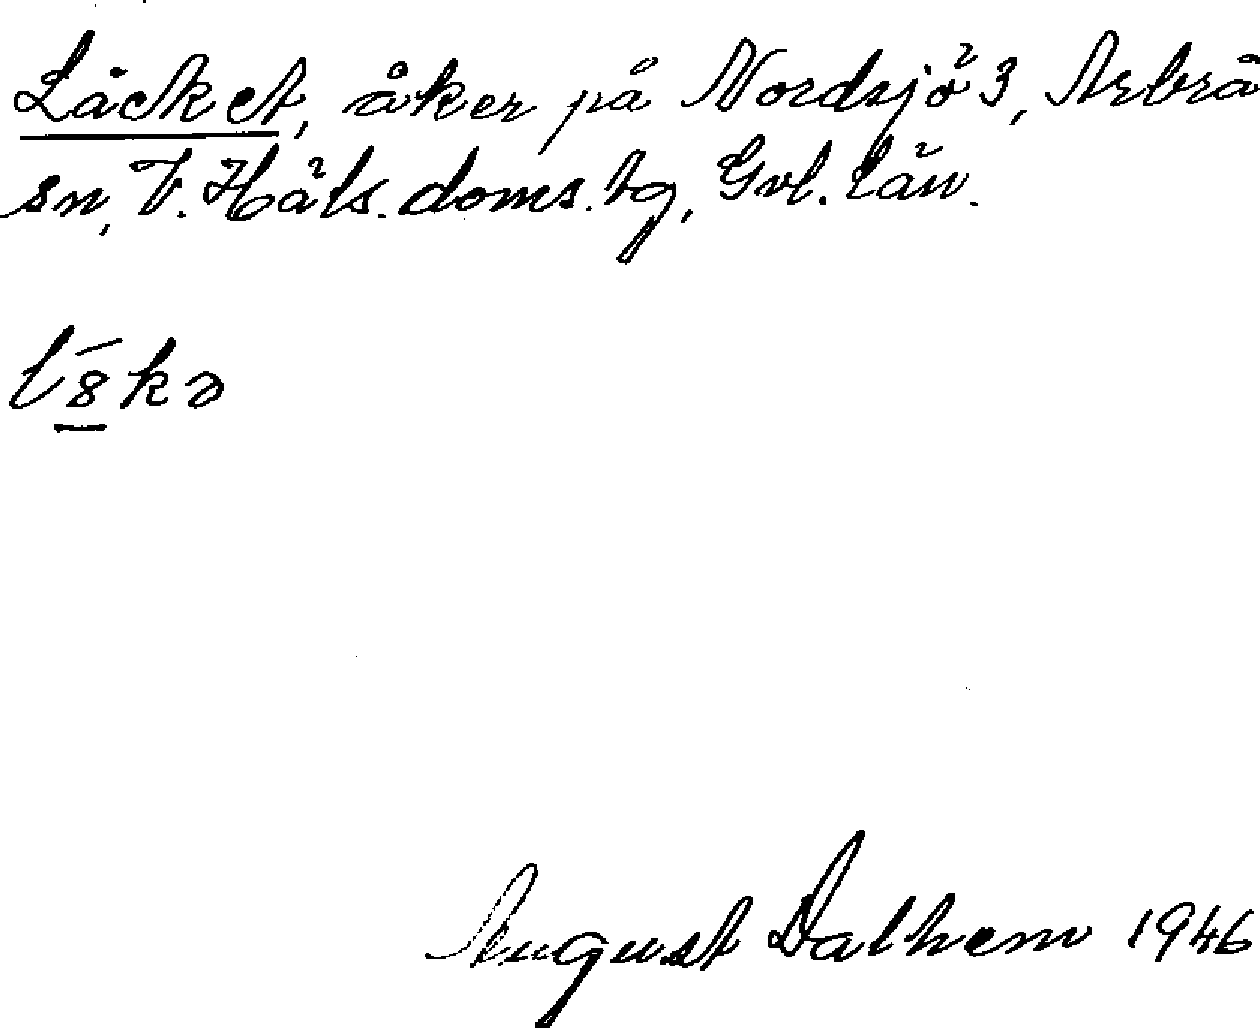 Läcket, åker på Nordsjö 3, Arbrå
sn, V. Häls. doms. tg, Gvl. län.
August Dalhem 1946